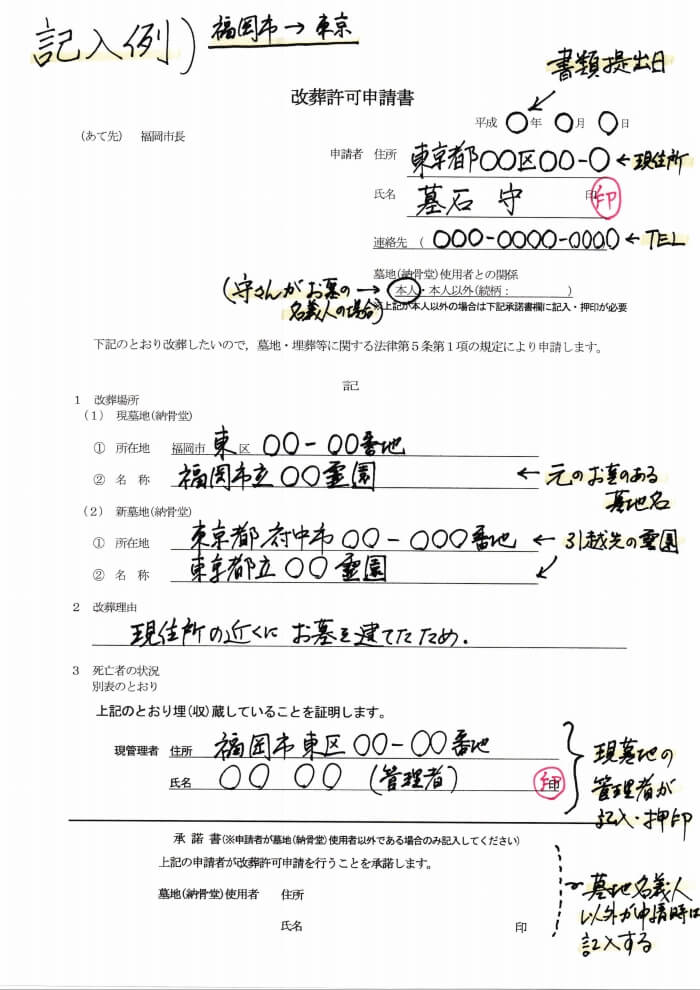 記入例) 福岡市→東京
書類提出日
改葬許可申請書
平成 〇年 〇月 〇日
(あて先) 福岡市長
申請者 住所 東京都〇〇区〇〇-〇 ←現住所
氏名 墓石 守 印
連絡先 (〇〇〇-〇〇〇〇-〇〇〇〇 ←TEL
墓地(納骨堂)使用者との関係
(守さんがお墓の名義人の場合)→ 本人・本人以外(続柄: )
※上記が本人以外の場合は下記承諾書欄に記入・押印が必要
下記のとおり改葬したいので,墓地・埋葬等に関する法律第5条第1項の規定により申請します。
記
1 改葬場所
(1) 現墓地(納骨堂)
① 所在地 福岡市 東 区 〇〇-〇〇番地
② 名 称 福岡市立〇〇霊園 ←元のお墓のある墓地名
(2) 新墓地(納骨堂)
① 所在地 東京都府中市〇〇-〇〇〇番地 ←引越先の霊園
② 名 称 東京都立〇〇霊園
2 改葬理由
現住所の近くにお墓を建てたため.
3 死亡者の状況
別表のとおり
上記のとおり埋(収)蔵していることを証明します。
現管理者 住所 福岡市東区〇〇-〇〇番地
氏名 〇〇 〇〇 (管理者) 印
現墓地の
管理者が
記入・押印
承 諾 書(※申請者が墓地(納骨堂)使用者以外である場合のみ記入してください)
上記の申請者が改葬許可申請を行うことを承諾します。
墓地(納骨堂)使用者 住所
氏名 印
墓地名義人
以外が申請時は
記入する